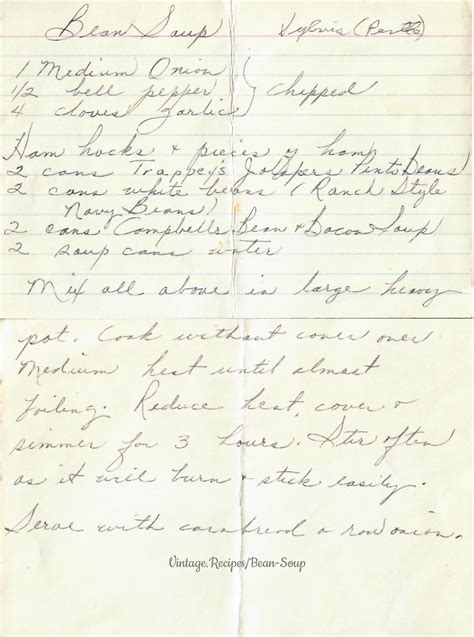 Bean Soup Sylvia
1 Medium Onion
1/2 bell pepper } Chopped
4 cloves garlic
Ham hocks + pieces of ham
2 cans Trappey's Jalapero Pinto Beans
2 cans white beans (Ranch Style
Navy Beans)
2 cans Campbells Bean & Bacon Soup
2 soup cans water
Mix all above in large heavy
pot. Cook without cover over
Medium heat until almost
boiling. Reduce heat, cover &
simmer for 3 hours. Stir often
as it will burn + stick easily.
Serve with cornbread & raw onion.
Vintage.Recipes/Bean-Soup